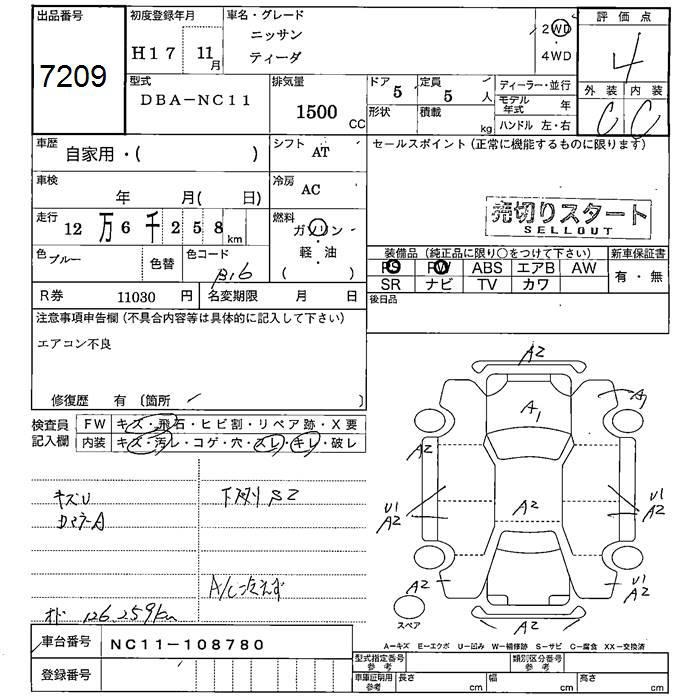 出品番号
7209
初度登録年月
H17 11月
車名・グレード
ニッサン
ティーダ
2WD
4WD
評価点
4
外装 内装
C C
型式
DBA-NC11
排気量
1500 CC
ドア 5
定員 5 人
形状
積載 kg
ディーラー・並行
モデル年式 年
ハンドル 左・右
車歴
自家用・( )
シフト AT
セールスポイント(正常に機能するものに限ります)
車検
年 月( 日)
冷房 AC
売切りスタート
SELLOUT
走行 12万6千258km
燃料
ガソリン
軽・油
( )
色 ブルー
色替
色コード
B16
装備品(純正品に限り○をつけて下さい)
新車保証書
PS PW ABS エアB AW
有・無
SR ナビ TV カワ
R券 11030 円
名変期限 月 日
後日品
注意事項申告欄(不具合内容等は具体的に記入して下さい)
エアコン不良
修復歴 有 〔箇所 〕
検査員記入欄
FW キズ・飛石・ヒビ割・リペア跡・X要
内装 キズ・汚レ・コゲ・穴・スレ・キレ・破レ
キズU
下廻りS2
A/C冷えず
オド 126.259km
A2
A1
A1
A2
U1
A2
A2
U1
A2
A2
U1
A2
A2
スペア
A-キズ E-エクボ U-凹み W-補修跡 S-サビ C-腐食 XX-交換済
車台番号 NC11-108780
登録番号
型式指定番号 参考
類別区分番号 参考
車庫証明用 参考
長さ cm
幅 cm
高さ cm